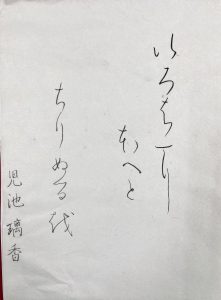 いろはに
ほへと
ちりぬるを
児池璃香